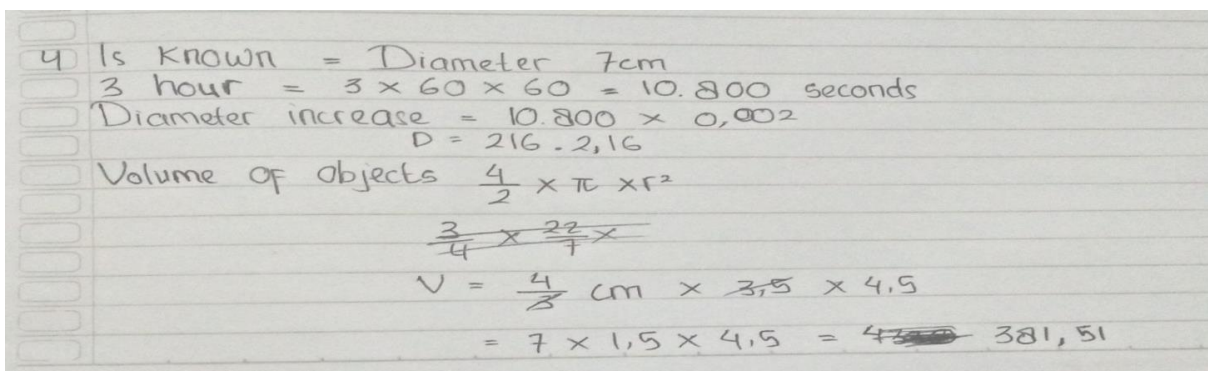 4 Is Known = Diameter 7cm
3 hour = 3 × 60 × 60 = 10.800 seconds
Diameter increase = 10.800 × 0,002
D = 216 - 2,16
Volume OF Objects 4/2 × π × r²
3/4 × 22/7 ×
V = 4/3 cm × 3,5 × 4.5
= 7 × 1,5 × 4,5 = 381,51